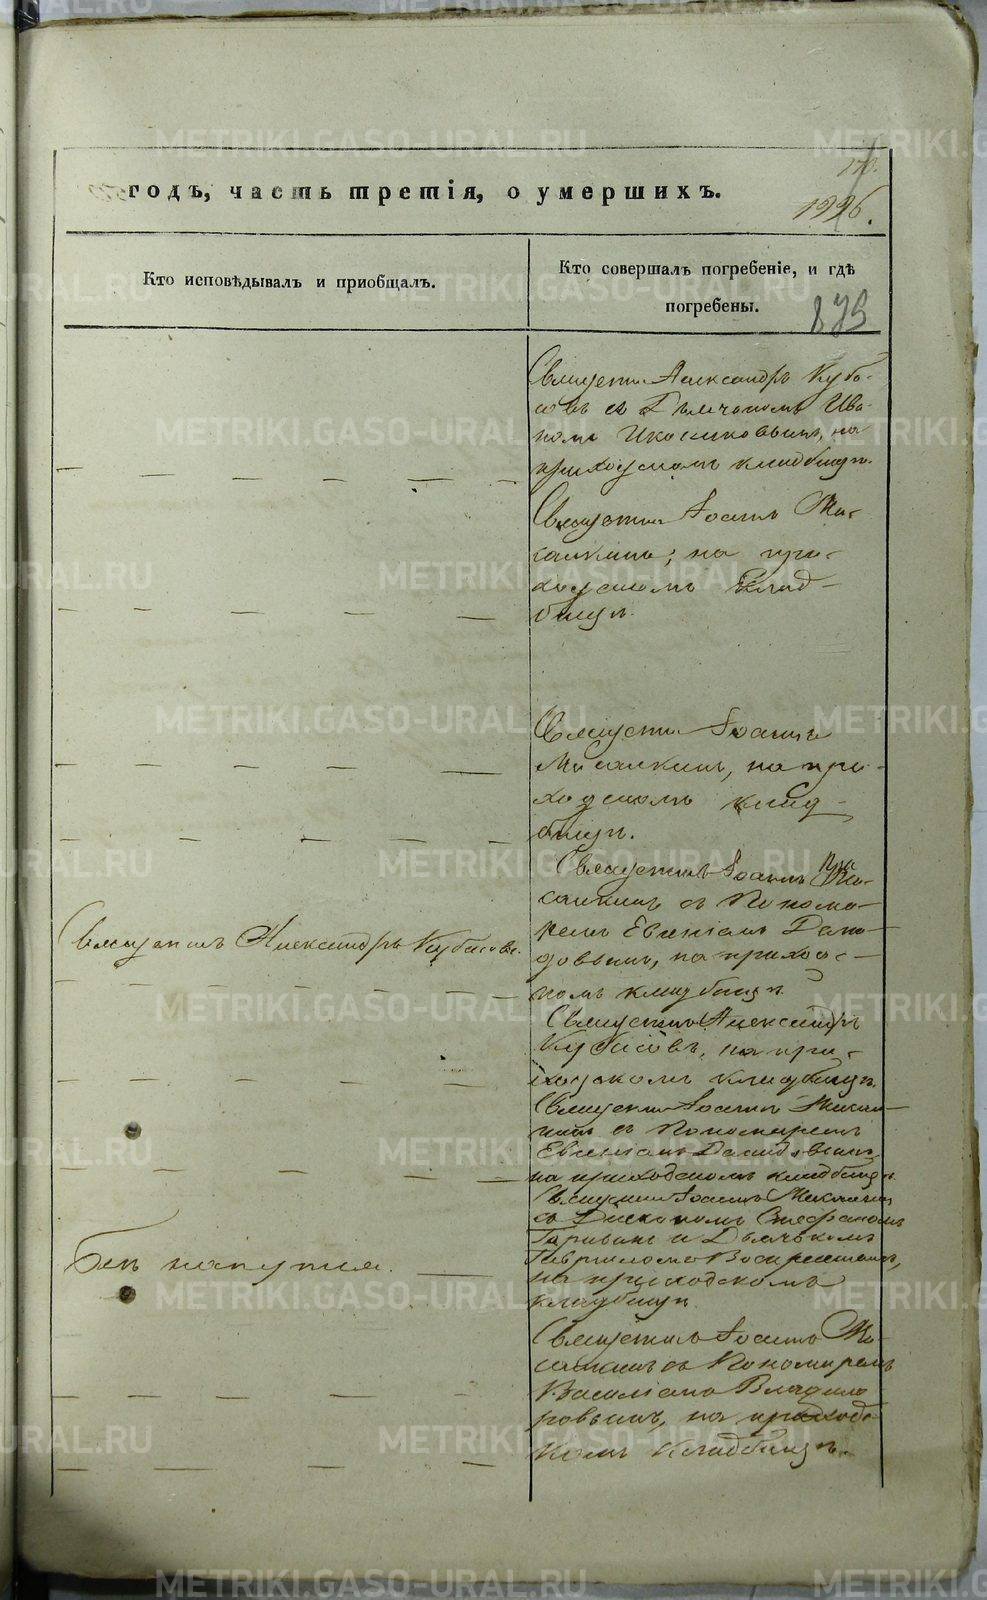 годъ, часть третія, о умершихъ.
170.
1996.
Кто исповѣдывалъ и приобщалъ.
Кто совершалъ погребеніе, и гдѣ
погребены.
879
Священникъ Александръ Куба-
совъ съ Дьячкомъ Ива-
номъ на
приходскомъ кладбищѣ.
Священникъ Іоаннъ
на при-
ходскомъ Клад-
бищѣ.
Священникъ Іоаннъ
на при-
ходскомъ клад-
бищѣ.
Священникъ Іоаннъ
съ Понома-
ремъ Евгеніемъ Дави-
довымъ, на приходс-
комъ кладбищѣ.
Священникъ Александръ Кубасовъ.
Священникъ Александръ
Кубасовъ, на при-
ходскомъ кладбищѣ.
Священникъ Іоаннъ
съ Пономаремъ
Евгеніемъ Давидовымъ,
на приходскомъ кладбищѣ.
Священникъ Іоаннъ
съ Діякономъ Стефаномъ
и Дьячкомъ
Гавріиломъ Воскресенскимъ,
на приходскомъ
кладбищѣ.
Безъ напутія.
Священникъ Іоаннъ
съ Пономаремъ
Василіемъ
на приходс-
комъ Кладбищѣ.
METRIKI.GASO-URAL.RU